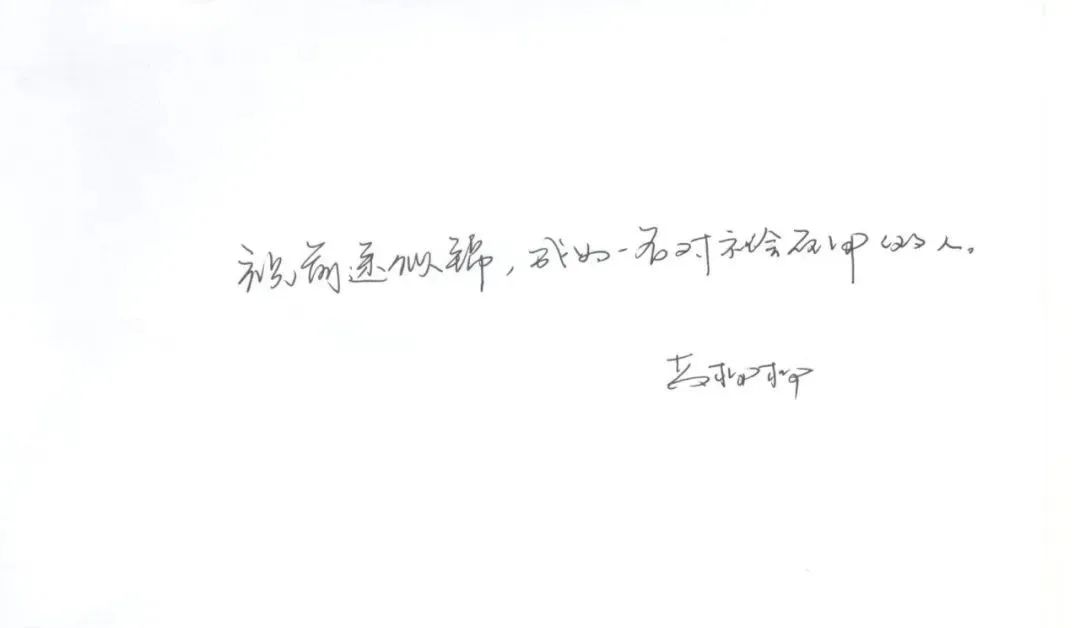 祝前途似锦,成为一名对社会有用的人。